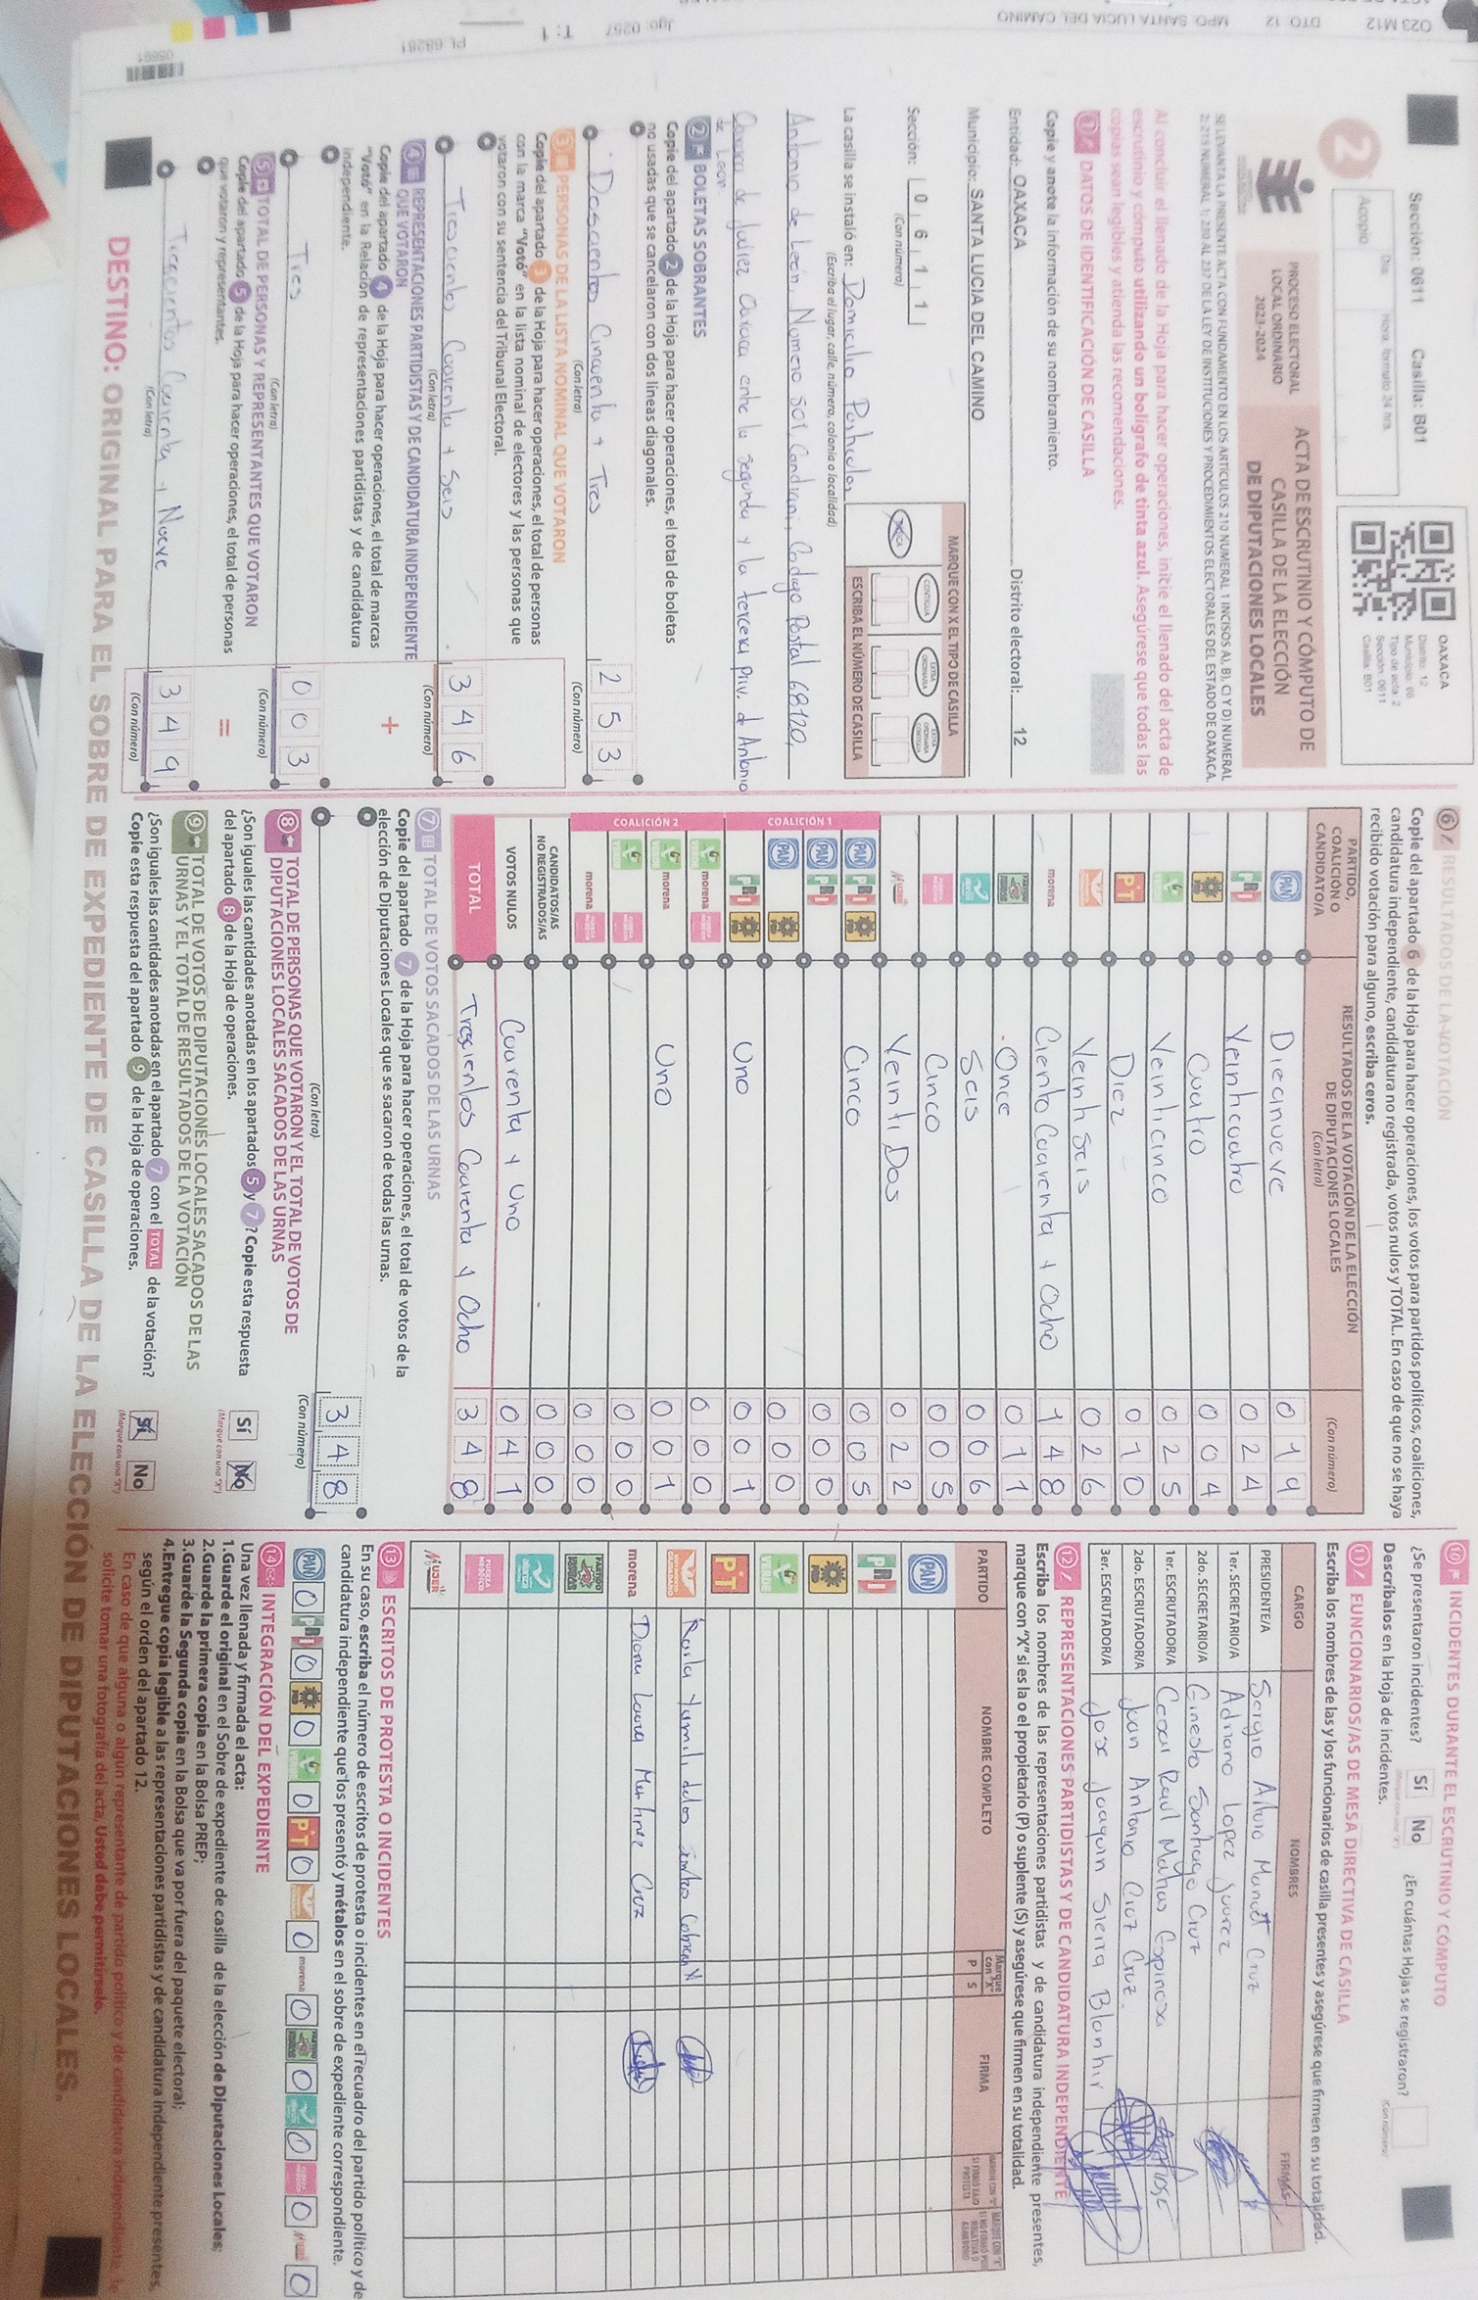 Sección: 0611 Casilla: B01
Acopio
Día Hora, formato 24 hrs.
OAXACA
Distrito: 12
Municipio: 66
Tipo de acta: 2
Sección: 0611
Casilla: B01
2
PROCESO ELECTORAL
LOCAL ORDINARIO
2023-2024
ACTA DE ESCRUTINIO Y CÓMPUTO DE
CASILLA DE LA ELECCIÓN
DE DIPUTACIONES LOCALES
SE LEVANTA LA PRESENTE ACTA CON FUNDAMENTO EN LOS ARTÍCULOS 210 NUMERAL 1 INCISOS A), B), C) Y D) NUMERAL
2; 211 NUMERAL 1; 230 AL 237 DE LA LEY DE INSTITUCIONES Y PROCEDIMIENTOS ELECTORALES DEL ESTADO DE OAXACA.
Al concluir el llenado de la Hoja para hacer operaciones, inicie el llenado del acta de
escrutinio y cómputo utilizando un bolígrafo de tinta azul. Asegúrese que todas las
copias sean legibles y atienda las recomendaciones.
1 DATOS DE IDENTIFICACIÓN DE CASILLA
Copie y anote la información de su nombramiento.
Entidad: OAXACA Distrito electoral: 12
Municipio: SANTA LUCIA DEL CAMINO
Sección: 0 6 1 1
(Con número)
MARQUE CON X EL TIPO DE CASILLA
BÁSICA CONTIGUA EXTRAORDINARIA EXTRAORDINARIA CONTIGUA
ESCRIBA EL NÚMERO DE CASILLA
La casilla se instaló en: Domicilio Particular
(Escriba el lugar, calle, número, colonia o localidad)
Antonio de León, Número 501, Candiani, Codigo Postal 68120,
Oaxaca de Juárez Oaxaca entre la segunda y la tercera priv. d Antonio
de León
2 BOLETAS SOBRANTES
Copie del apartado 2 de la Hoja para hacer operaciones, el total de boletas
no usadas que se cancelaron con dos líneas diagonales.
Doscientos Cincuenta y Tres 2 5 3
(Con letra) (Con número)
3 PERSONAS DE LA LISTA NOMINAL QUE VOTARON
Copie del apartado 3 de la Hoja para hacer operaciones, el total de personas
con la marca “Votó” en la lista nominal de electores y las personas que
votaron con su sentencia del Tribunal Electoral.
Trescientos Cuarenta y Seis 3 4 6
(Con letra) (Con número)
4 REPRESENTACIONES PARTIDISTAS Y DE CANDIDATURA INDEPENDIENTE
QUE VOTARON
Copie del apartado 4 de la Hoja para hacer operaciones, el total de marcas
“Votó” en la Relación de representaciones partidistas y de candidatura
independiente.
+
Tres 0 0 3
(Con letra) (Con número)
5 TOTAL DE PERSONAS Y REPRESENTANTES QUE VOTARON
Copie del apartado 5 de la Hoja para hacer operaciones, el total de personas
que votaron y representantes.
=
Trescientos Cuarenta y Nueve 3 4 9
(Con letra) (Con número)
6 RESULTADOS DE LA VOTACIÓN
Copie del apartado 6 de la Hoja para hacer operaciones, los votos para partidos políticos, coaliciones,
candidatura independiente, candidatura no registrada, votos nulos y TOTAL. En caso de que no se haya
recibido votación para alguno, escriba ceros.
PARTIDO, COALICIÓN O CANDIDATO/A
RESULTADOS DE LA VOTACIÓN DE LA ELECCIÓN
DE DIPUTACIONES LOCALES
(Con letra) (Con número)
PAN Diecinueve 0 1 9
PRI Veinticuatro 0 2 4
PRD Cuatro 0 0 4
VERDE Veinticinco 0 2 5
PT Diez 0 1 0
Veintiseis 0 2 6
morena Ciento Cuarenta y Ocho 1 4 8
Once 0 1 1
Seis 0 0 6
Cinco 0 0 5
Veinti Dos 0 2 2
COALICIÓN 1
PAN PRI PRD Cinco 0 0 5
PAN PRI 0 0 0
PAN PRD 0 0 0
PRI PRD Uno 0 0 1
COALICIÓN 2
VERDE morena 0 0 0
VERDE morena Uno 0 0 1
VERDE 0 0 0
morena 0 0 0
CANDIDATOS/AS
NO REGISTRADOS/AS 0 0 0
VOTOS NULOS Cuarenta y Uno 0 4 1
TOTAL Trescientos Cuarenta y Ocho 3 4 8
7 TOTAL DE VOTOS SACADOS DE LAS URNAS
Copie del apartado 7 de la Hoja para hacer operaciones, el total de votos de la
elección de Diputaciones Locales que se sacaron de todas las urnas.
3 4 8
(Con letra) (Con número)
8 TOTAL DE PERSONAS QUE VOTARON Y EL TOTAL DE VOTOS DE
DIPUTACIONES LOCALES SACADOS DE LAS URNAS
¿Son iguales las cantidades anotadas en los apartados 5 y 7? Copie esta respuesta
del apartado 8 de la Hoja de operaciones.
Sí No
(Marque con una “X”)
9 TOTAL DE VOTOS DE DIPUTACIONES LOCALES SACADOS DE LAS
URNAS Y EL TOTAL DE RESULTADOS DE LA VOTACIÓN
¿Son iguales las cantidades anotadas en el apartado 7 con el TOTAL de la votación?
Copie esta respuesta del apartado 9 de la Hoja de operaciones.
Sí No
(Marque con una “X”)
10 INCIDENTES DURANTE EL ESCRUTINIO Y CÓMPUTO
¿Se presentaron incidentes? Sí No ¿En cuántas Hojas se registraron?
Descríbalos en la Hoja de incidentes.
11 FUNCIONARIOS/AS DE MESA DIRECTIVA DE CASILLA
Escriba los nombres de las y los funcionarios de casilla presentes y asegúrese que firmen en su totalidad.
CARGO NOMBRES FIRMAS
PRESIDENTE/A Sergio Arturo Cruz
1er. SECRETARIO/A Adriana Lopez Juarez
2do. SECRETARIO/A Santiago Cruz
1er. ESCRUTADOR/A Cesar Raul Espinoza
2do. ESCRUTADOR/A Juan Antonio Cruz Cruz
3er. ESCRUTADOR/A Jose Joaquin Sierra
12 REPRESENTACIONES PARTIDISTAS Y DE CANDIDATURA INDEPENDIENTE
Escriba los nombres de las representaciones partidistas y de candidatura independiente presentes,
marque con “X” si es la o el propietario (P) o suplente (S) y asegúrese que firmen en su totalidad.
PARTIDO NOMBRE COMPLETO Marque con “X” P S FIRMA
PAN
PRI
PRD
VERDE
PT
X
morena Diana Laura Martinez Cruz
MUJER
13 ESCRITOS DE PROTESTA O INCIDENTES
En su caso, escriba el número de escritos de protesta o incidentes en el recuadro del partido político y de
candidatura independiente que los presentó y métalos en el sobre de expediente correspondiente.
PAN 0 PRI 0 PRD 0 VERDE 0 PT 0 0 morena 0 0 0 0 0
14 INTEGRACIÓN DEL EXPEDIENTE
Una vez llenada y firmada el acta:
1.Guarde el original en el Sobre de expediente de casilla de la elección de Diputaciones Locales;
2.Guarde la primera copia en la Bolsa PREP;
3.Guarde la Segunda copia en la Bolsa que va por fuera del paquete electoral;
4.Entregue copia legible a las representaciones partidistas y de candidatura independiente presentes,
según el orden del apartado 12.
En caso de que alguna o algún representante de partido político y de candidatura independiente, le
solicite tomar una fotografía del acta, Usted debe permitírselo.
DESTINO: ORIGINAL PARA EL SOBRE DE EXPEDIENTE DE CASILLA DE LA ELECCIÓN DE DIPUTACIONES LOCALES.
023 M12 DTO 12 MPO SANTA LUCIA DEL CAMINO
Jgo: 0257 T: 1